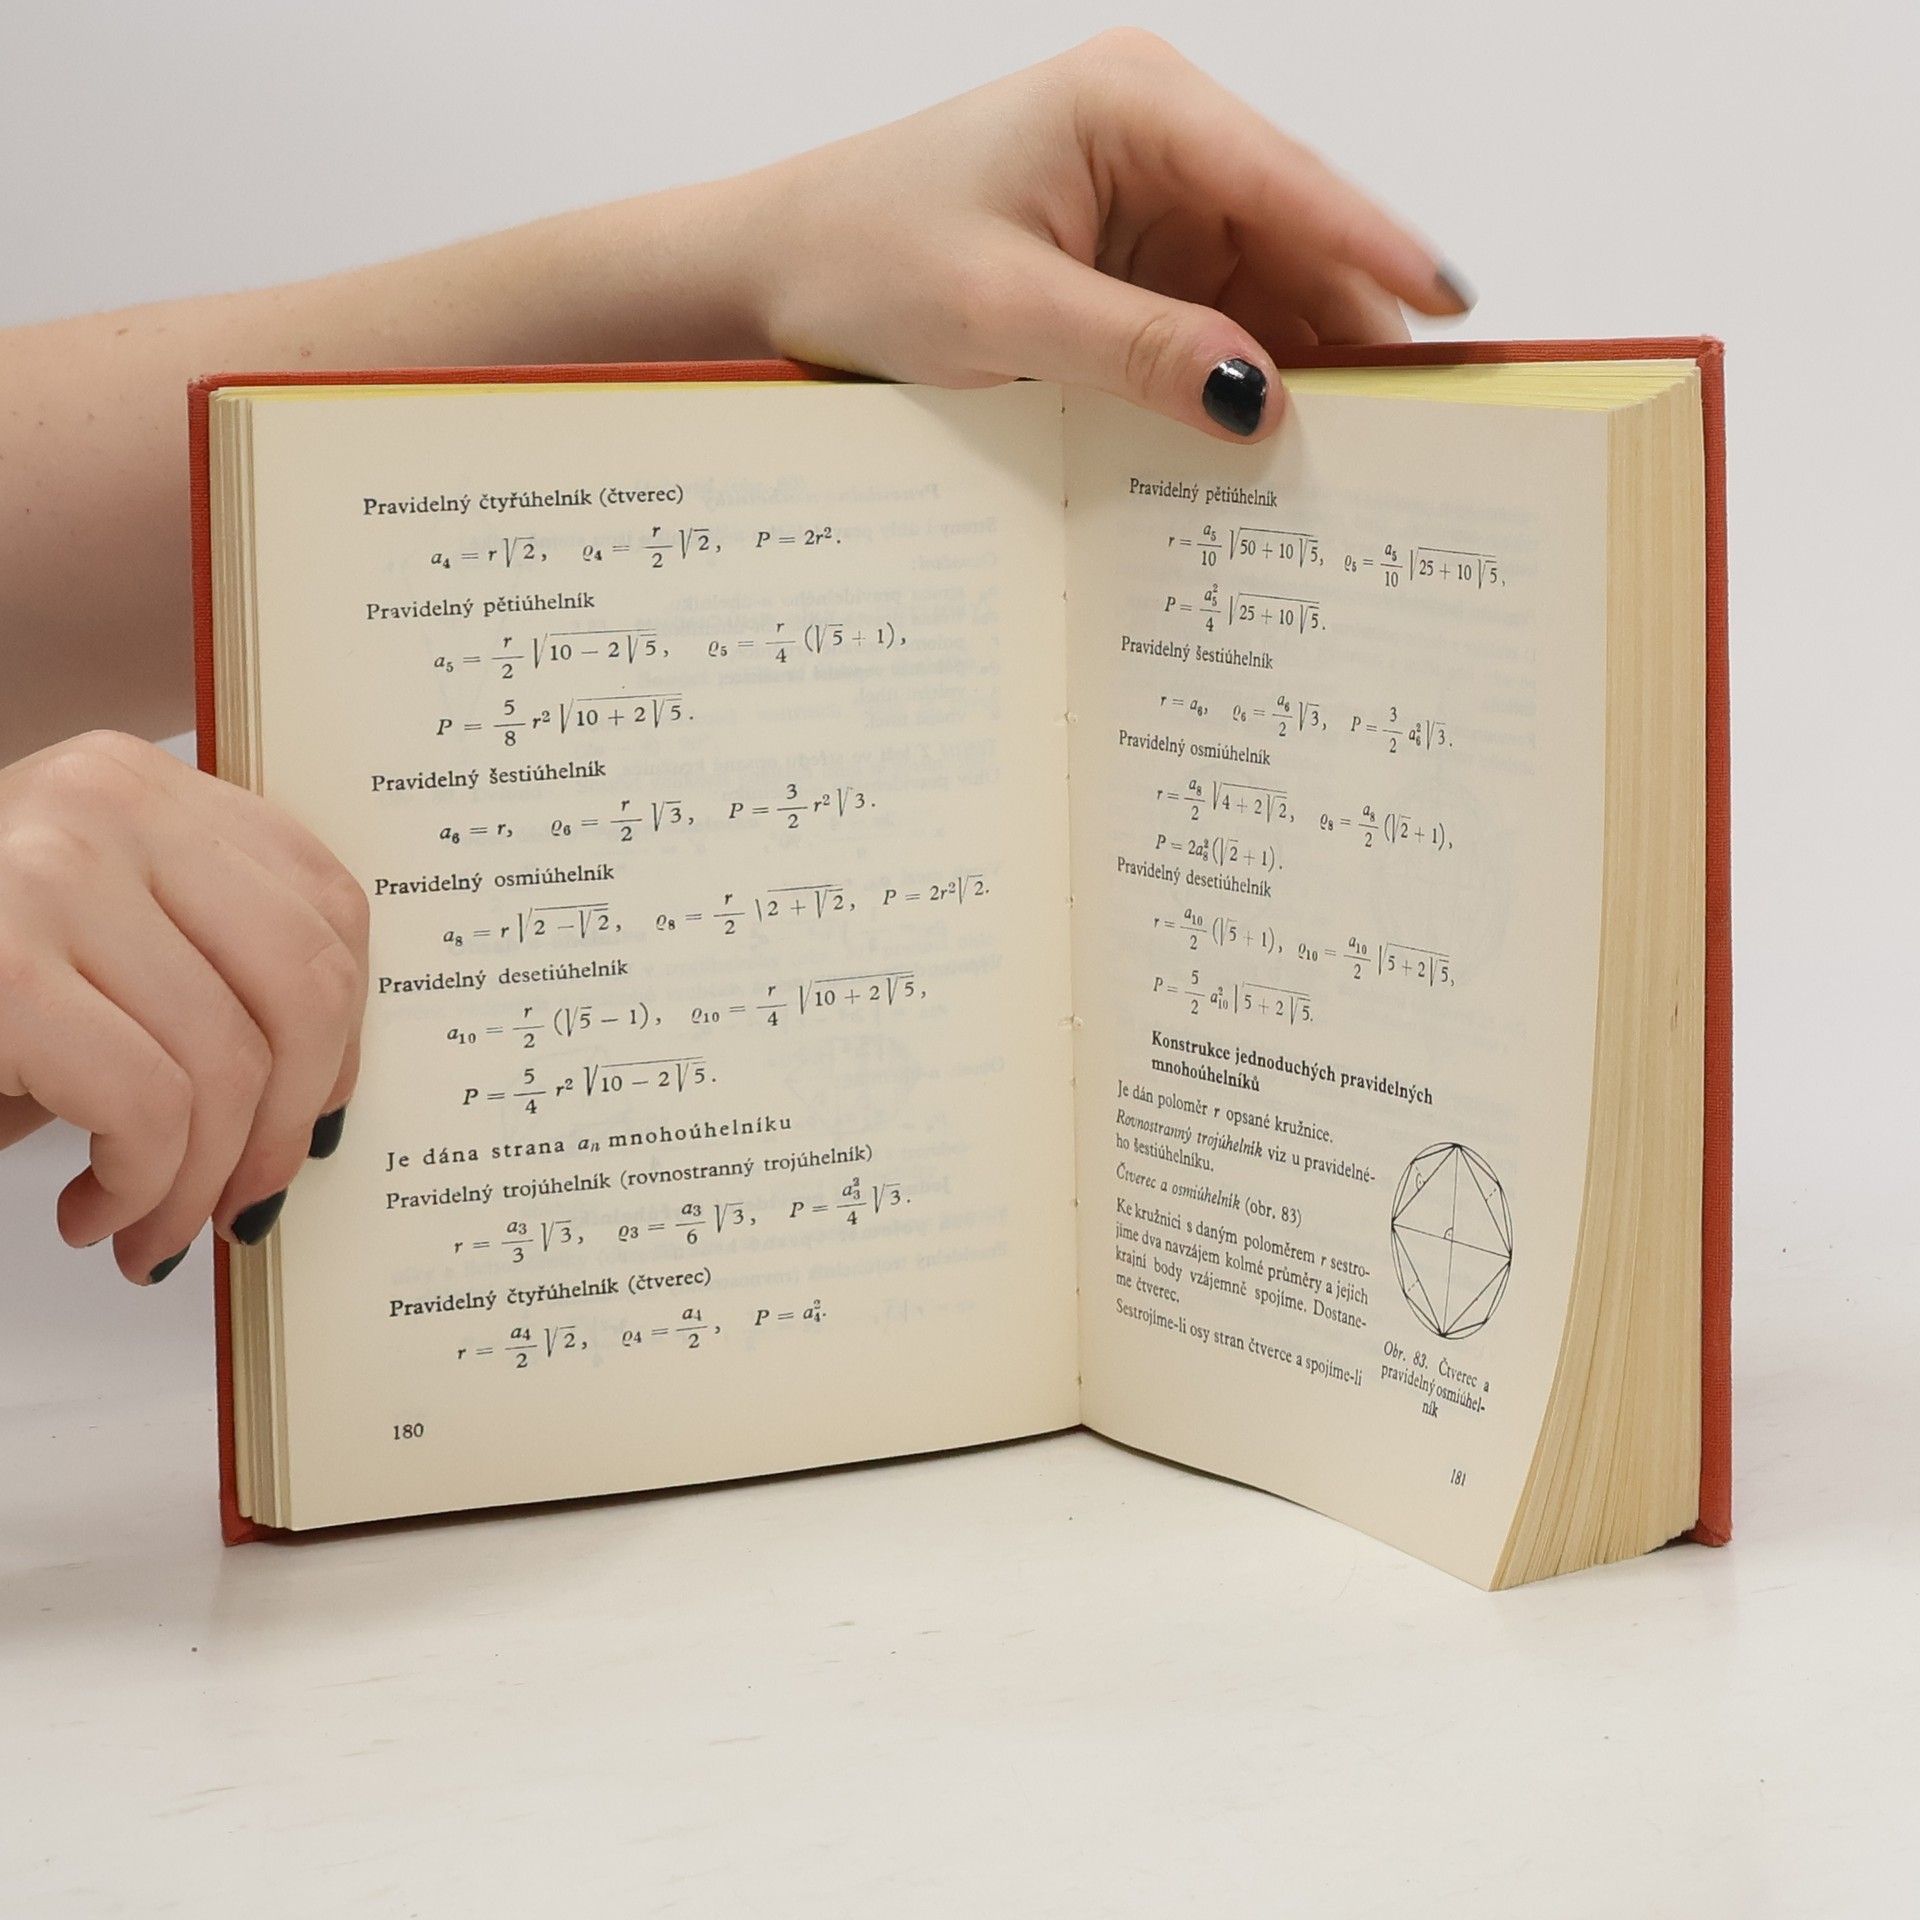 Pravidelný čtyřúhelník (čtverec)
a₄ = r√2, ϱ₄ = r/2 √2, P = 2r².
Pravidelný pětiúhelník
a₅ = r/2 √(10 − 2√5), ϱ₅ = r/4 (√5 + 1),
P = 5/8 r² √(10 + 2√5).
Pravidelný šestiúhelník
a₆ = r, ϱ₆ = r/2 √3, P = 3/2 r²√3.
Pravidelný osmiúhelník
a₈ = r√(2 − √2), ϱ₈ = r/2 √(2 + √2), P = 2r²√2.
Pravidelný desetiúhelník
a₁₀ = r/2 (√5 − 1), ϱ₁₀ = r/4 √(10 + 2√5),
P = 5/4 r² √(10 − 2√5).
Je dána strana aₙ mnohoúhelníku
Pravidelný trojúhelník (rovnostranný trojúhelník)
r = a₃/3 √3, ϱ₃ = a₃/6 √3, P = a₃²/4 √3.
Pravidelný čtyřúhelník (čtverec)
r = a₄/2 √2, ϱ₄ = a₄/2, P = a₄².
180
Pravidelný pětiúhelník
r = a₅/10 √(50 + 10√5), ϱ₅ = a₅/10 √(25 + 10√5),
P = a₅²/4 √(25 + 10√5).
Pravidelný šestiúhelník
r = a₆, ϱ₆ = a₆/2 √3, P = 3/2 a₆²√3.
Pravidelný osmiúhelník
r = a₈/2 √(4 + 2√2), ϱ₈ = a₈/2 (√2 + 1),
P = 2a₈²(√2 + 1).
Pravidelný desetiúhelník
r = a₁₀/2 (√5 + 1), ϱ₁₀ = a₁₀/2 √(5 + 2√5),
P = 5/2 a₁₀² √(5 + 2√5).
Konstrukce jednoduchých pravidelných
mnohoúhelníků
Je dán poloměr r opsané kružnice.
Rovnostranný trojúhelník viz u pravidelné-
ho šestiúhelníku.
Čtverec a osmiúhelník (obr. 83)
Ke kružnici s daným poloměrem r sestro-
jíme dva navzájem kolmé průměry a jejich
krajní body vzájemně spojíme. Dostane-
me čtverec.
Sestrojíme-li osy stran čtverce a spojíme-li
Obr. 83. Čtverec a
pravidelný osmiúhel-
ník
181